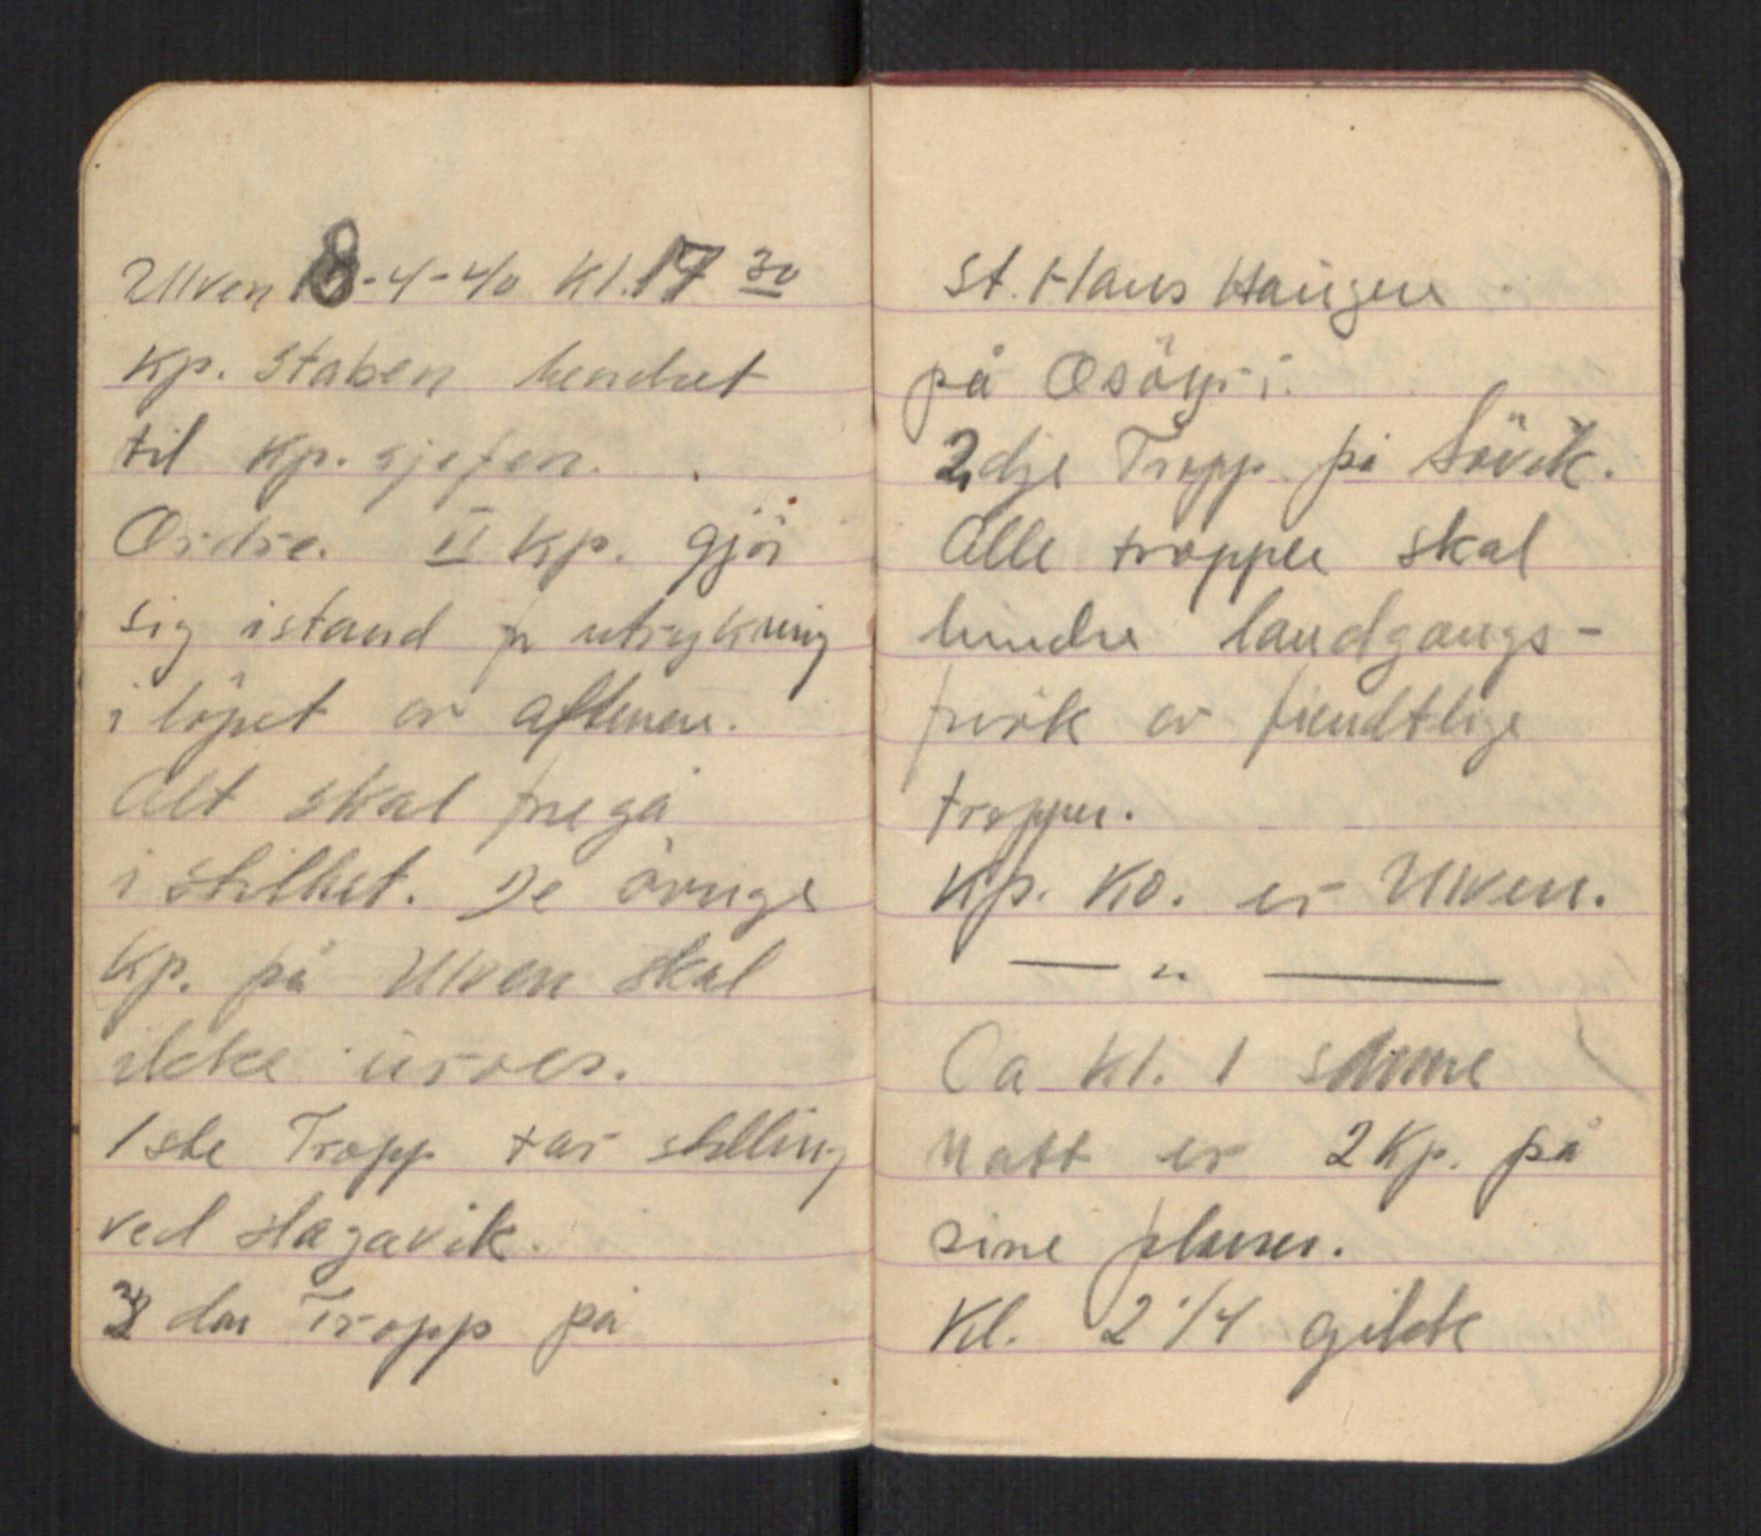 Ulven 8-4-40 Kl. 17 30
Kp. Staben hendret
til Kp. sjefen.
Ordre. II Kp. gjör
sig istand fr utrykning
i löpet av aftenen.
Alt skal fregå
i stillhet. De övrige
Kp. på Ulven skal
ikke uroes.
1ste Tropp tar stilling
ved Hagavik.
3 den Tropp på
St. Hans Haugen
på Osöyri.
2 dje Tropp på Sövik.
Alle tropper skal
hindre landgangs-
fırsök av fiendtlige
tropper.
Kp. Ko. er Ulven.
— " —
Ca Kl. 1 samme
Natt er 2 Kp. på
sine plasser.
Kl. 2 1/4 gikk